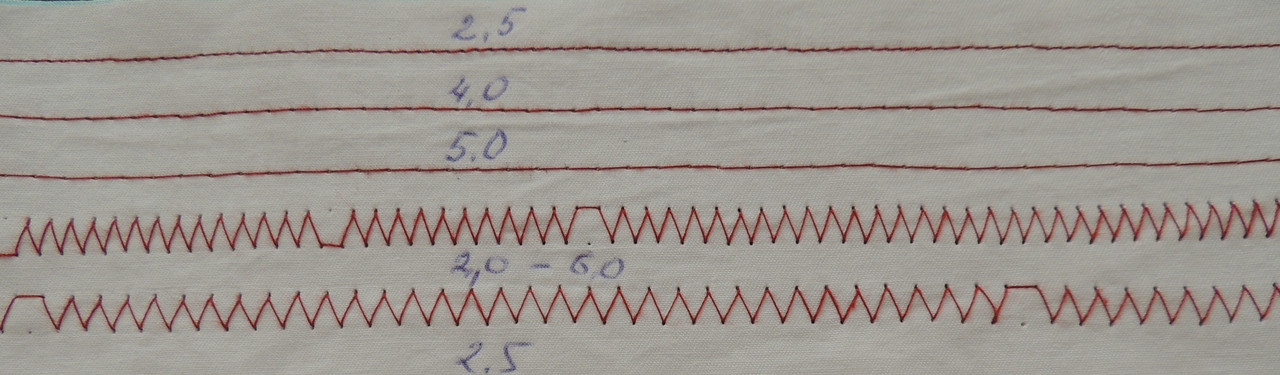 2,5
4,0
5,0
2,0 - 6,0
2,5